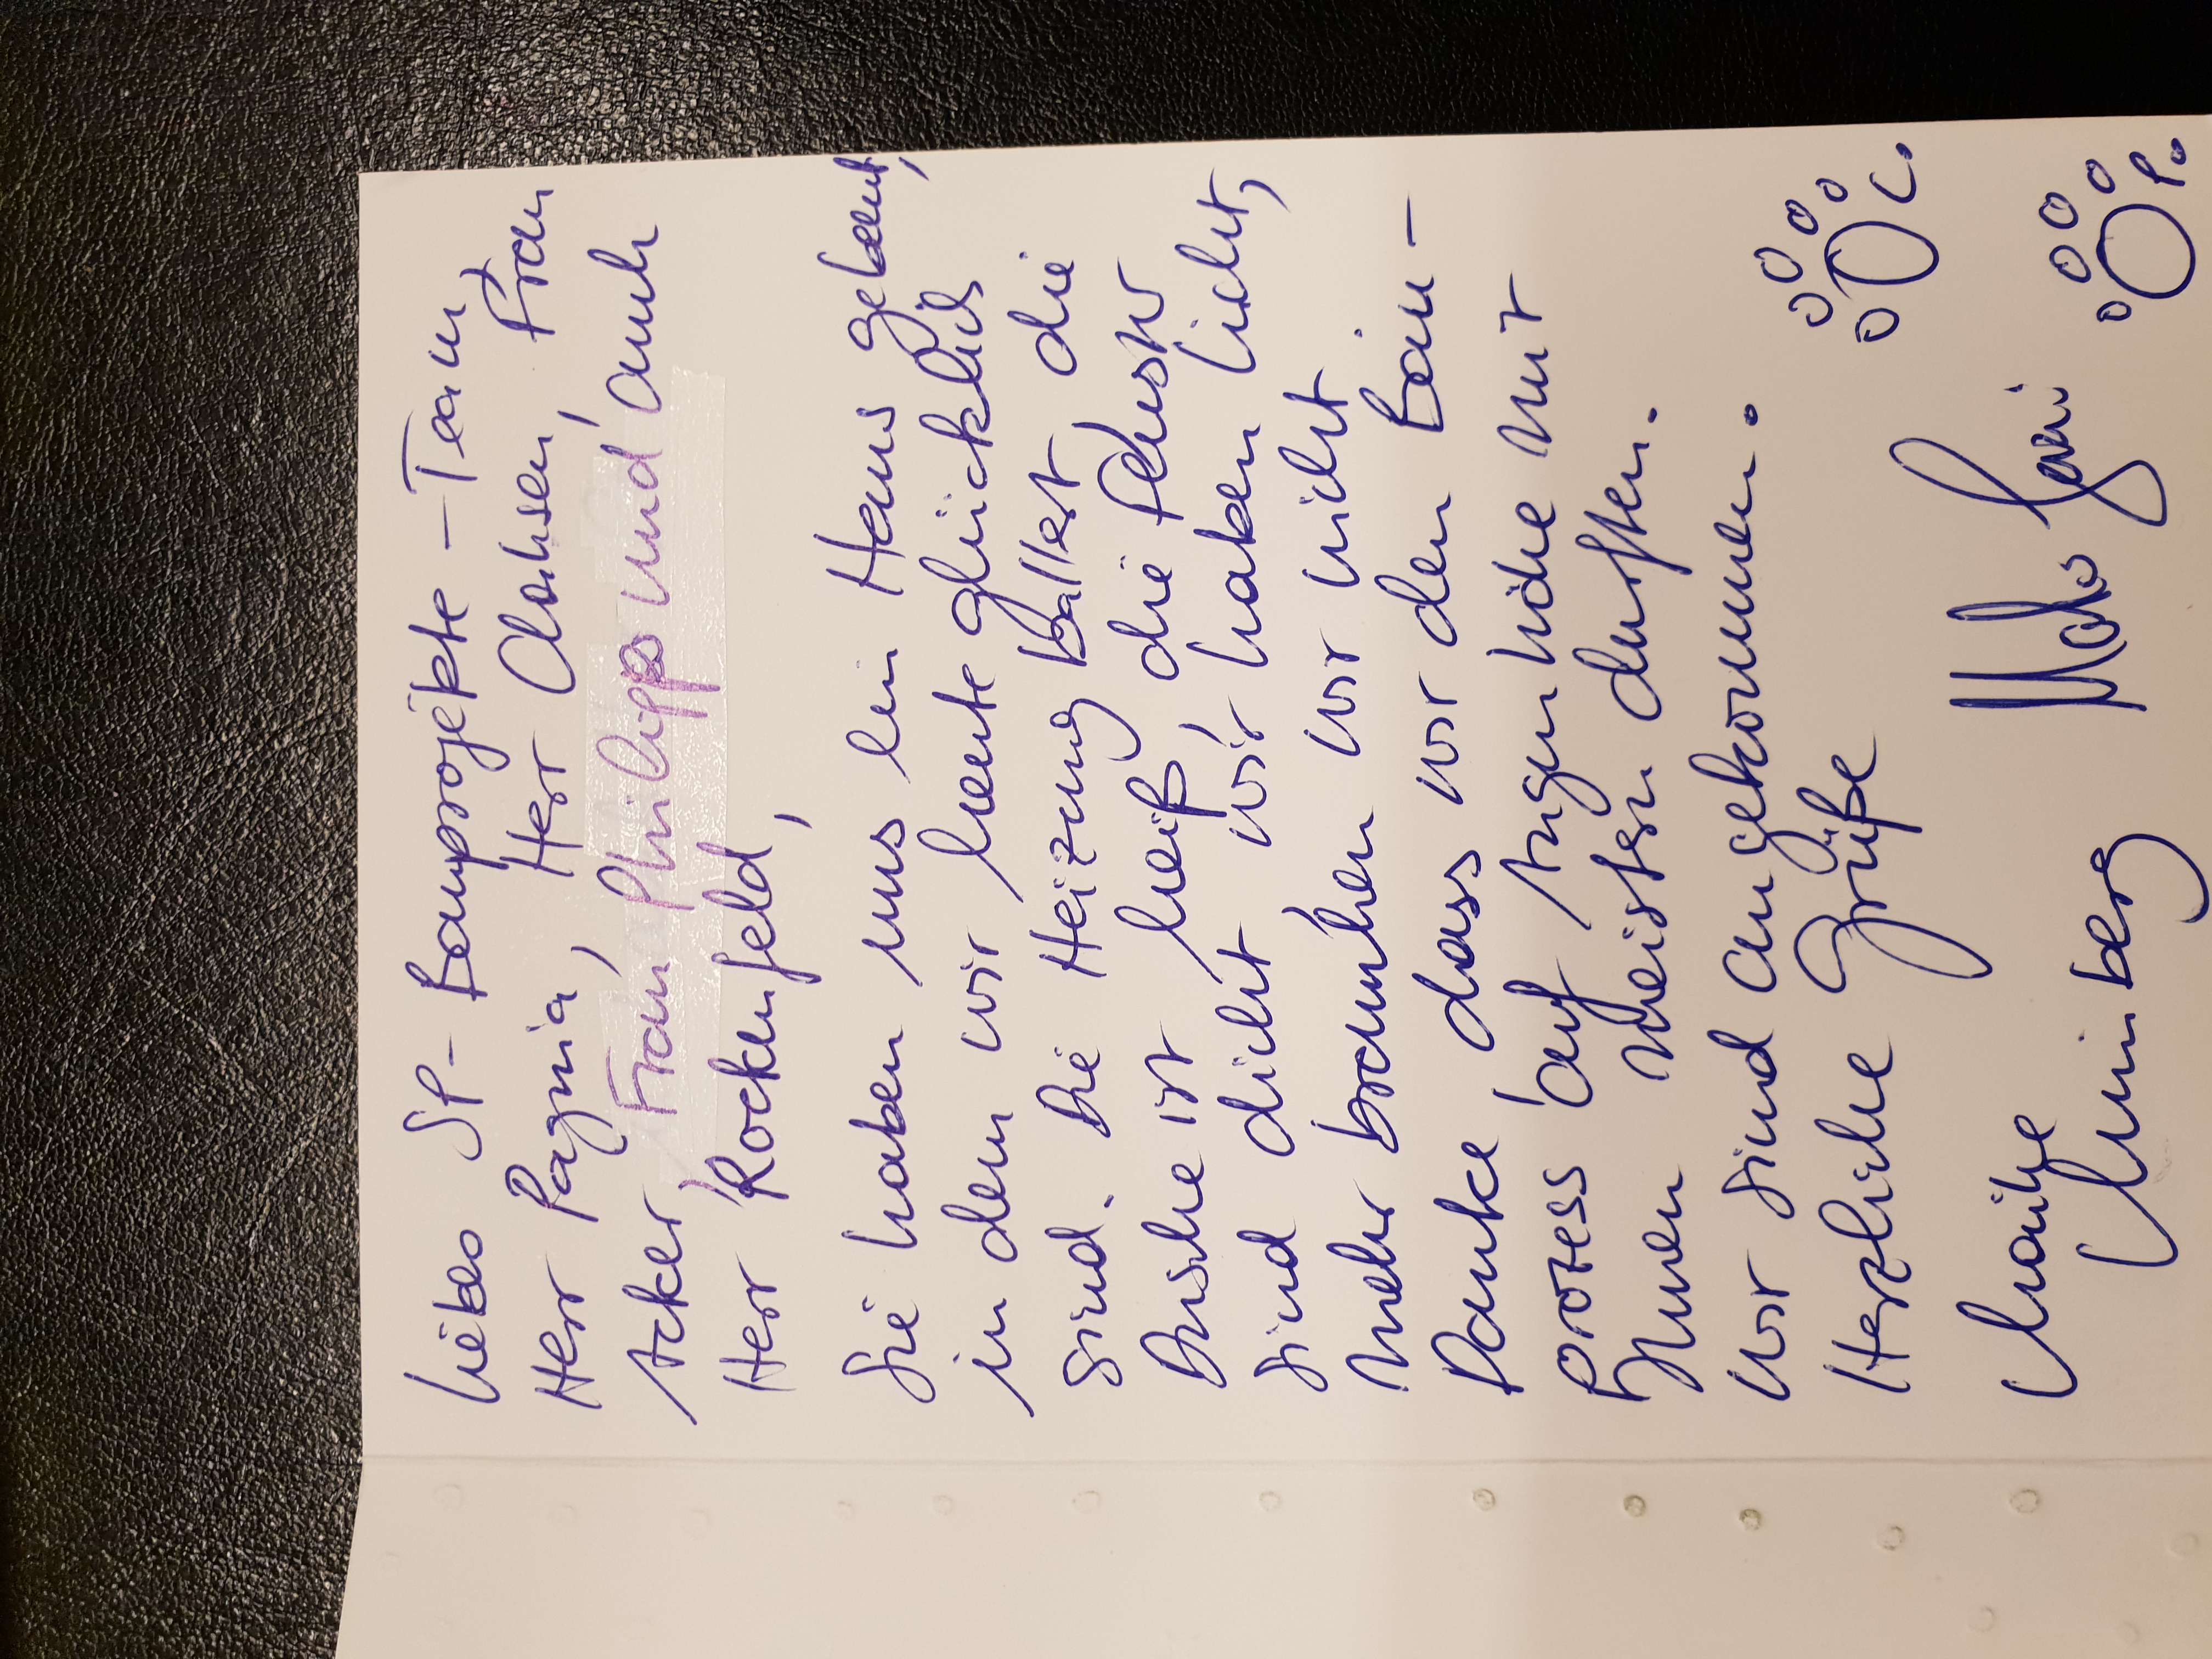 Liebes SP-Bauprojekte-Team,
Herr Pagnia, Herr Clahsen, Frau
Acker, Frau Philipps und auch
Herr Rockenfeld,
Sie haben uns ein Haus gebaut,
in dem wir heute glücklich
sind. Die Heizung ballert die
Dusche ist heiß, die Fenster
sind dicht wir haben Licht,
mehr brauchen wir nicht.
Danke, dass wir den Bau-
prozess auf Augenhöhe mit
Ihnen meistern durften.
Wir sind angekommen.
Herzliche Grüße
C.
P.